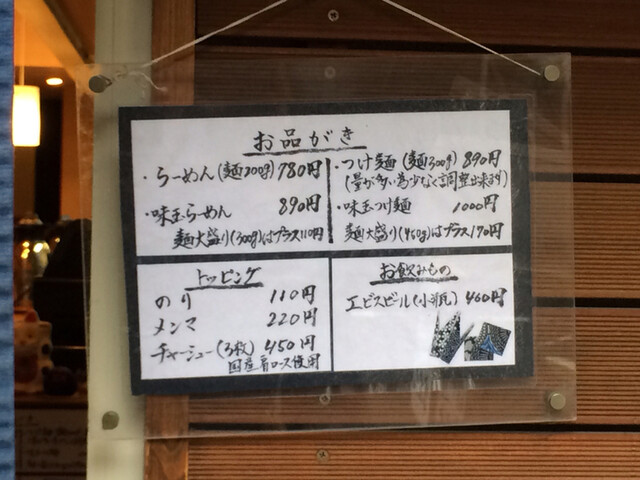 お品がき
・らーめん(麺200g) 780円
・味玉らーめん 890円
麺大盛り(300g)はプラス110円
・つけ麺(麺300g) 890円
(量が多い為少なく調整出来ます)
・味玉つけ麺 1000円
麺大盛り(450g)はプラス170円
トッピング
のり 110円
メンマ 220円
チャーシュー(3枚) 450円
国産肩ロース使用
お飲みもの
ヱビスビール(小瓶) 460円